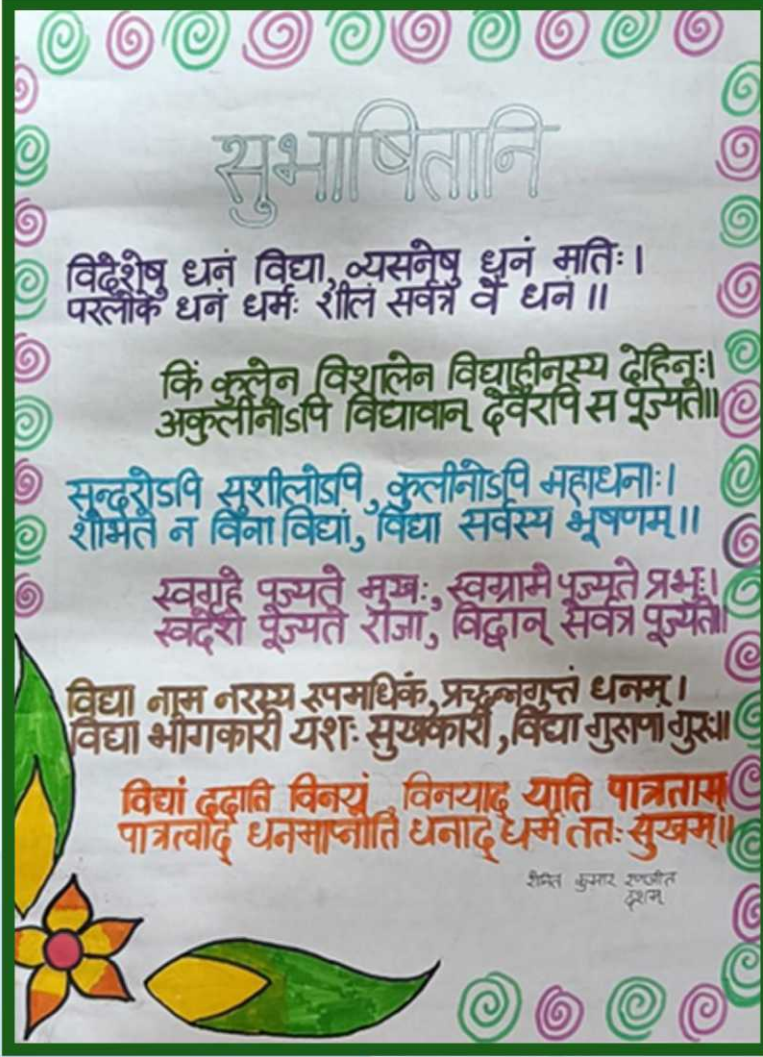 सुभाषितानि
विदेशेषु धनं विद्या, व्यसनेषु धनं मतिः।
परलोके धनं धर्मः शीलं सर्वत्र वै धनं॥
किं कुलेन विशालेन विद्याहीनस्य देहिनः।
अकुलीनोऽपि विद्यावान् देवैरपि स पूज्यते॥
सुन्दरोऽपि सुशीलोऽपि, कुलीनोऽपि महाधनाः।
शोभते न विना विद्यां, विद्या सर्वस्य भूषणम्॥
स्वगृहे पूज्यते मुर्खः, स्वग्रामे पूज्यते प्रभुः।
स्वदेशे पूज्यते राजा, विद्वान् सर्वत्र पूज्यते॥
विद्या नाम नरस्य रूपमधिकं, प्रच्छन्नगुप्तं धनम्।
विद्या भोगकारी यशः सुखकारी, विद्या गुरुणां गुरुः॥
विद्यां ददाति विनयं, विनयाद् याति पात्रताम्
पात्रत्वाद् धनमाप्नोति धनाद् धर्मं ततः सुखम्॥
कुमार रणजीत
दशम्